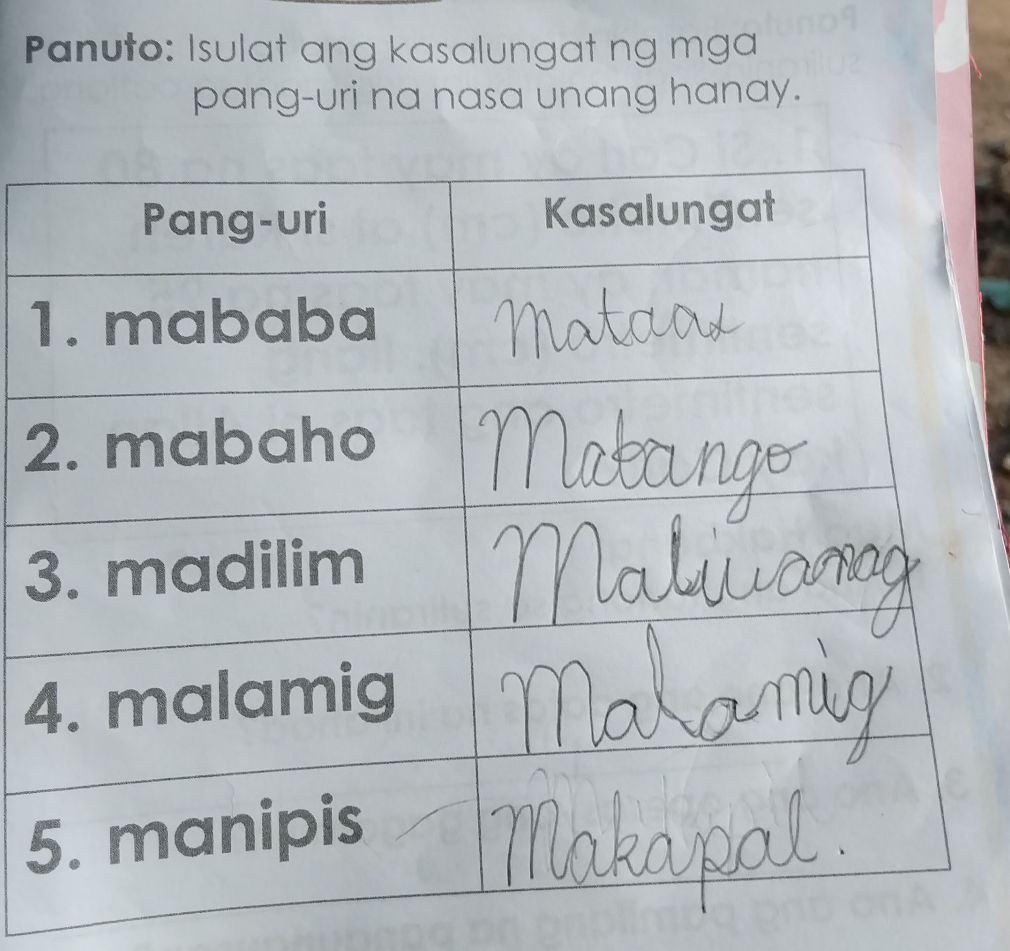 Panuto: Isulat ang kasalungat ng mga
pang-uri na nasa unang hanay.
Pang-uri Kasalungat
1. mababa Mataas
2. mabaho Mabango
3. madilim Maliwanag
4. malamig Malamig
5. manipis Makapal.